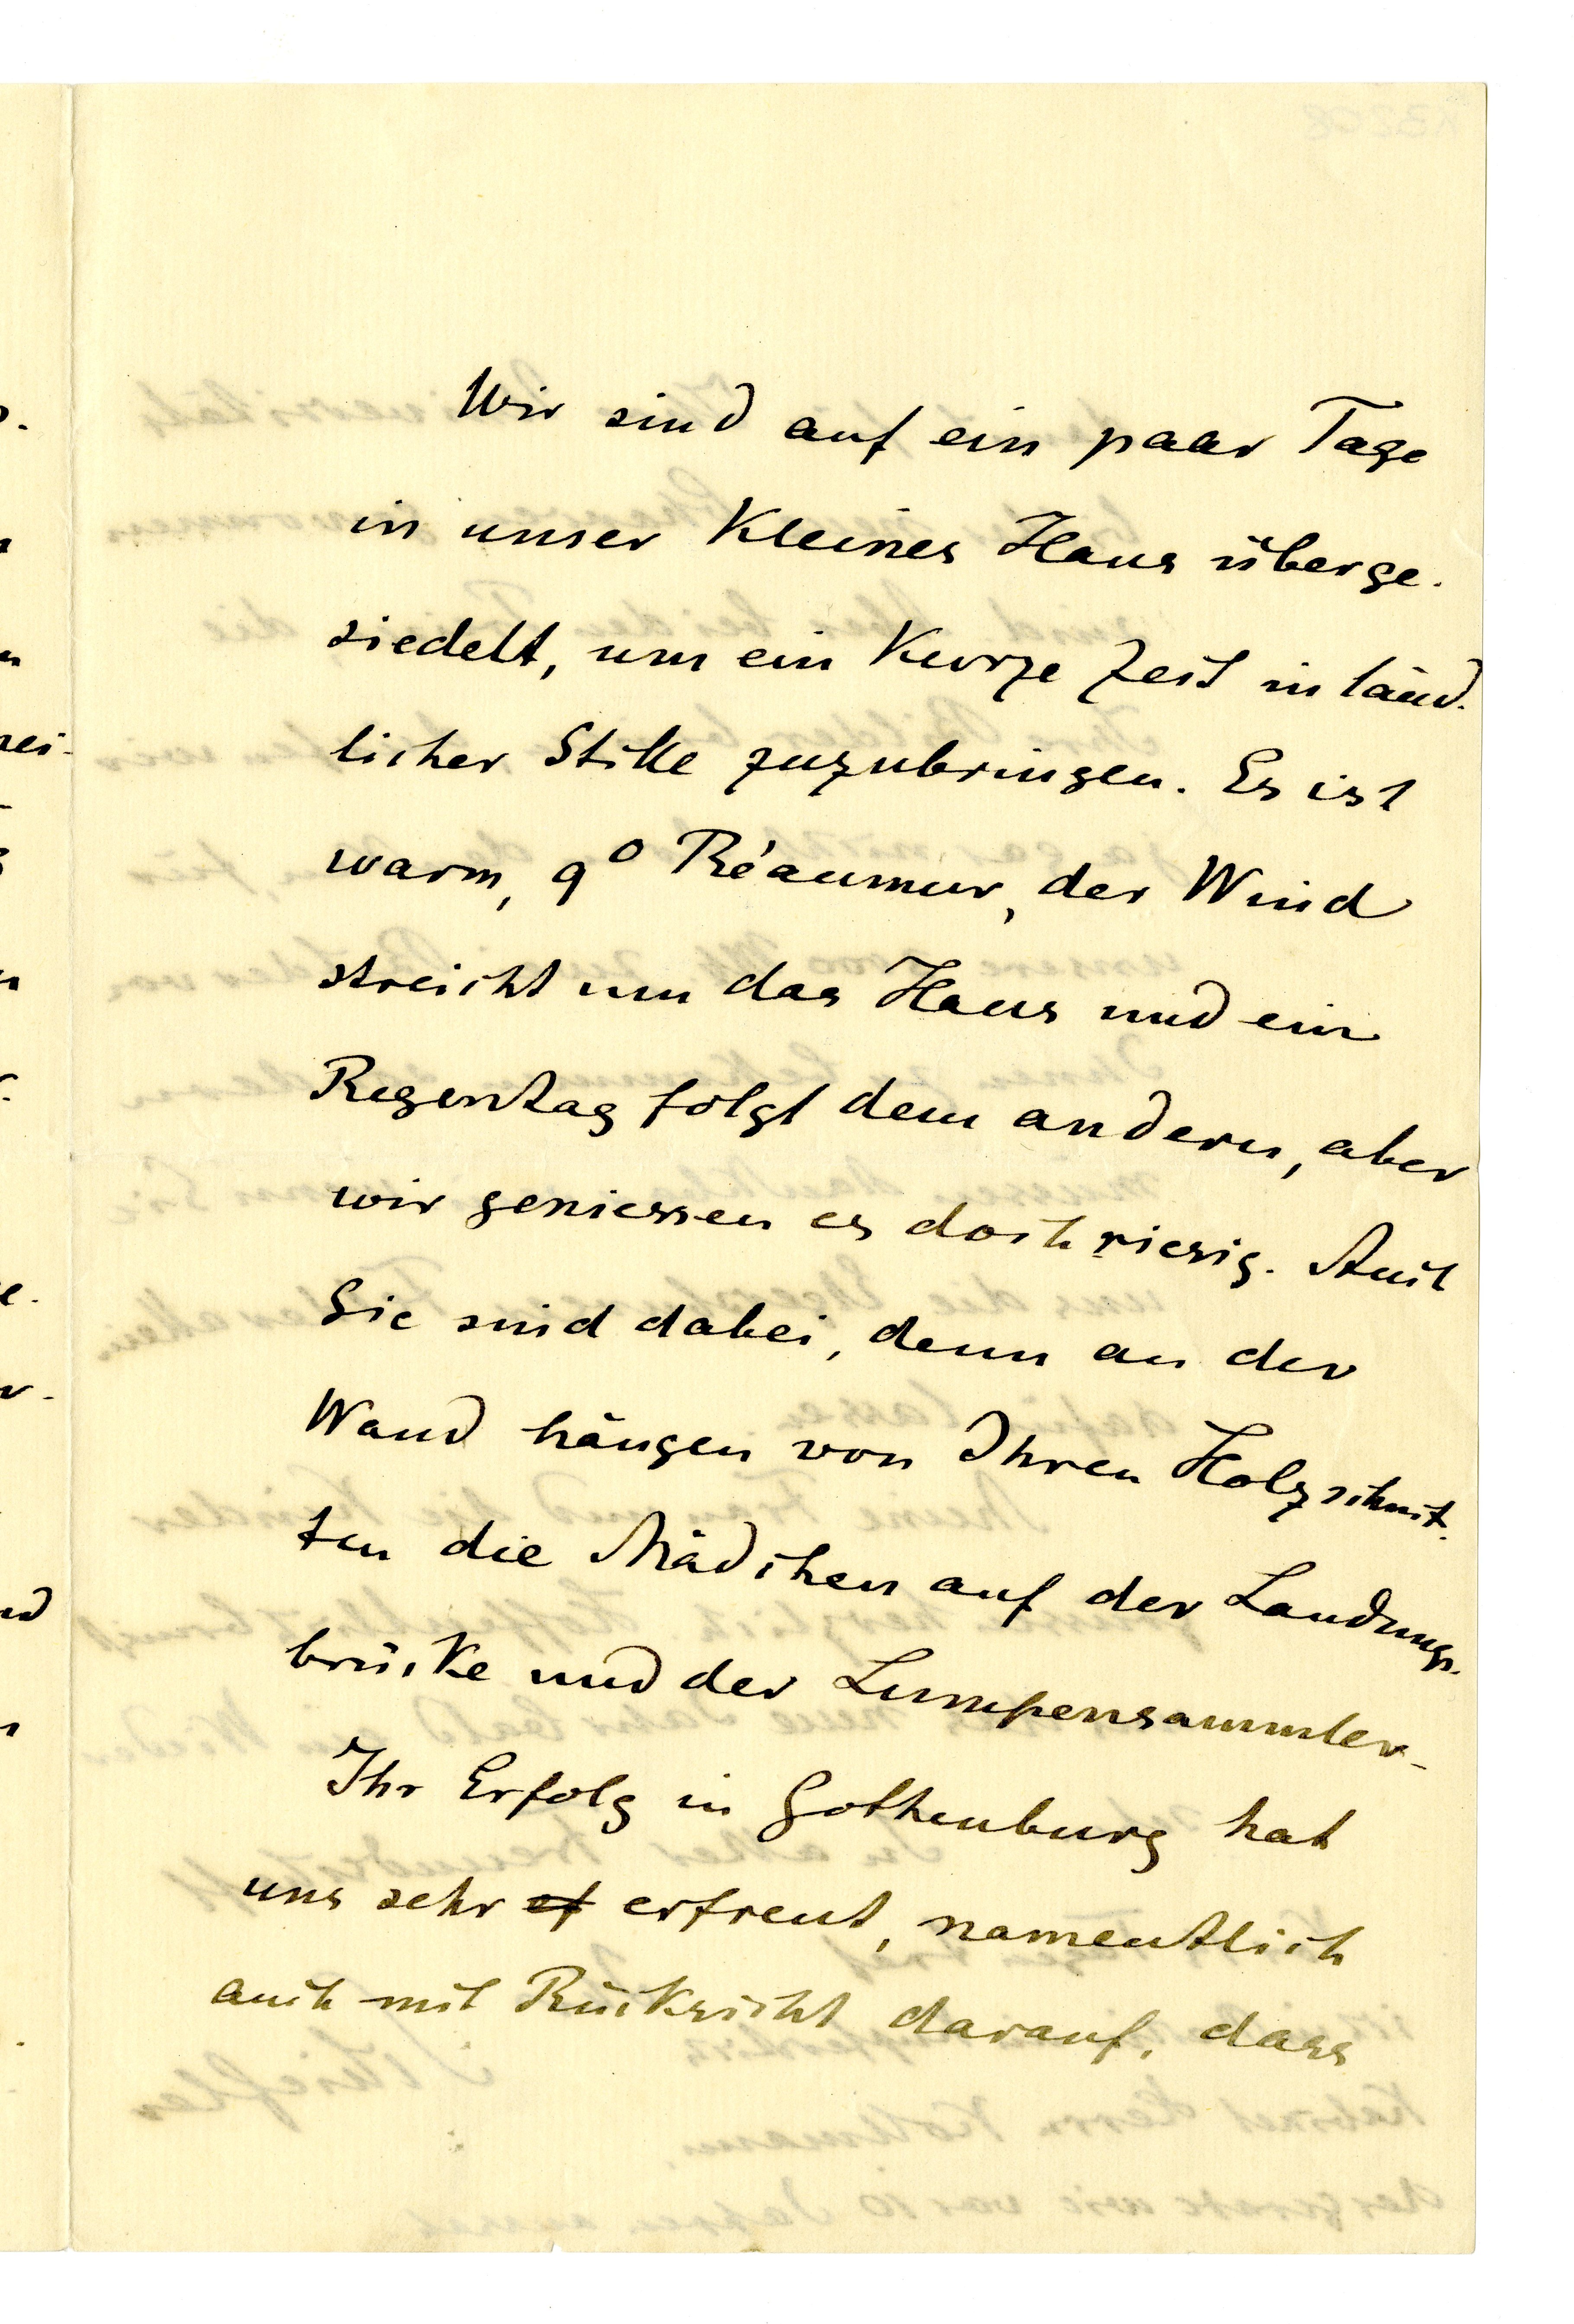 Wir sind auf ein paar Tage
in unser kleines Haus überge-
siedelt, um ein kurze Zeit in länd-
licher Stille zuzubringen. Es ist
warm, 9° Réaumur, der Wind
streicht um das Haus und ein
Regentag folgt dem andern, aber
wir geniessen es doch riesig. Auch
Sie sind dabei, denn an der
Wand hängen von Ihren Holzschnit-
ten die Mädchen auf der Landungs-
brücke und der Lumpensammler.
Ihr Erfolg in Gothenburg hat
uns sehr ef erfreut, namentlich
auch mit Rücksicht darauf, dass